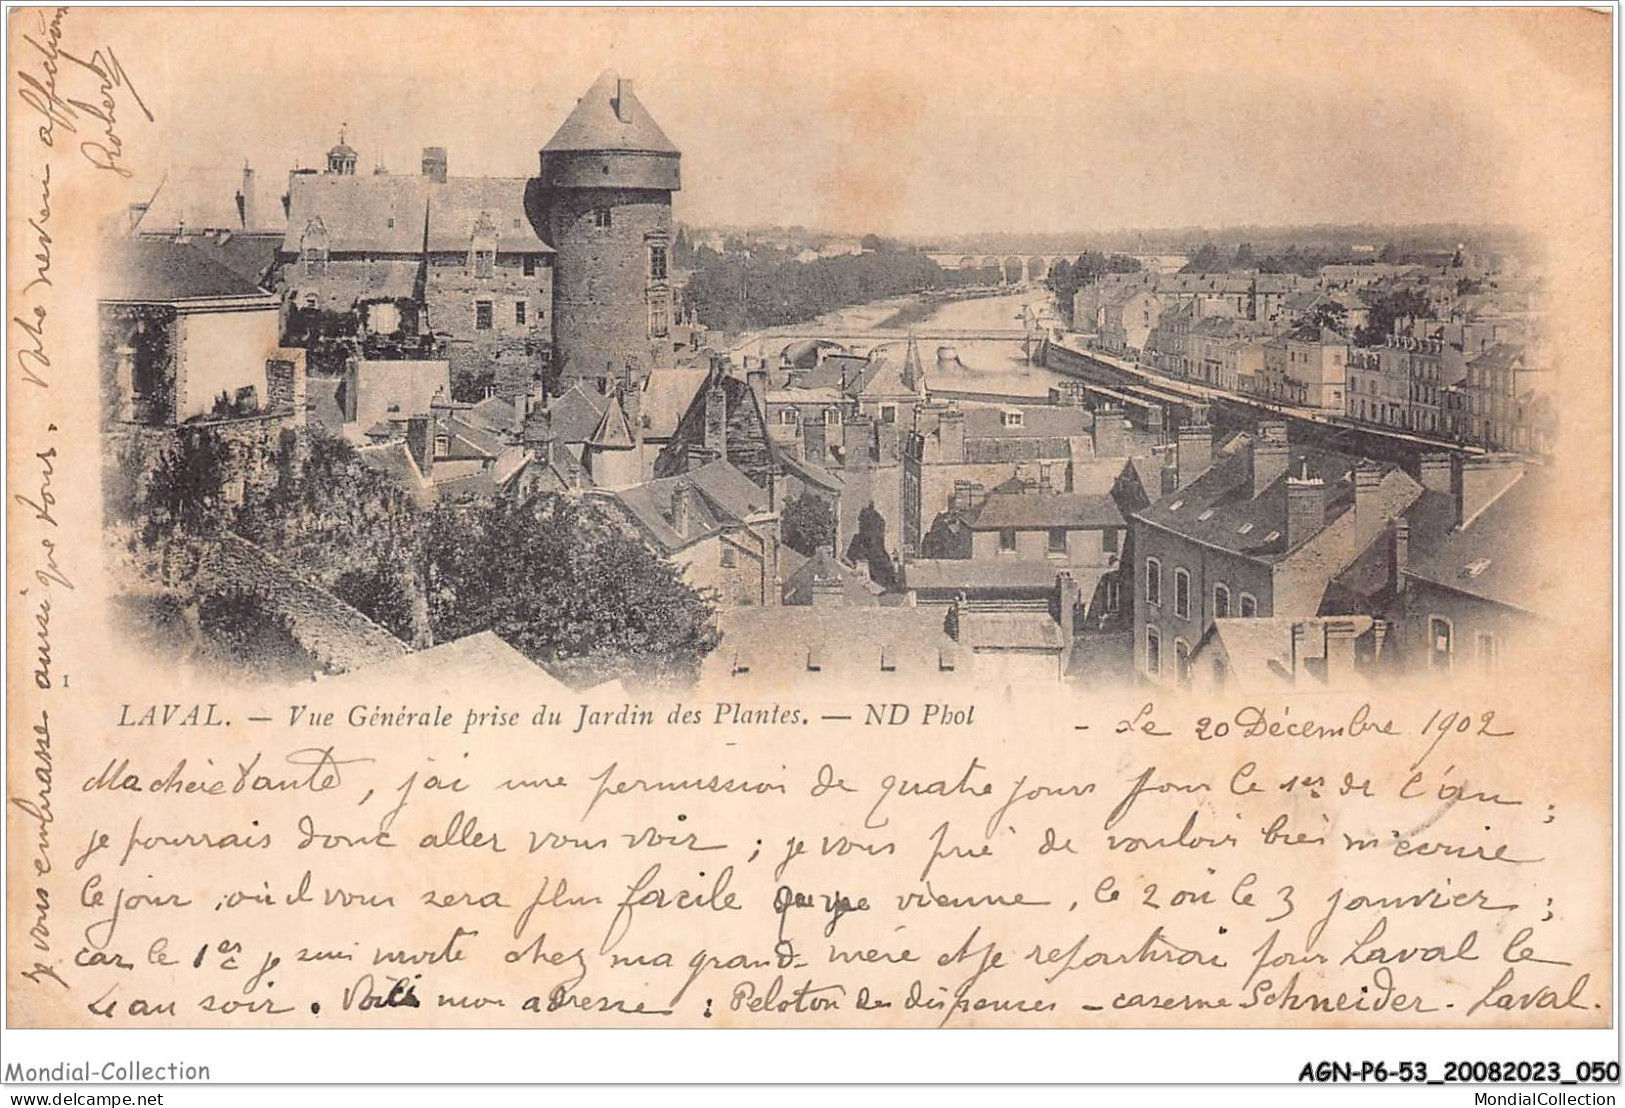 I
LAVAL. — Vue Générale prise du Jardin des Plantes. — ND Phot
- Le 20 Décembre 1902
Ma chère Tante, j'ai une permission de quatre jours pour le 1er de l'an ;
je pourrais donc aller vous voir ; je vous prie de vouloir bien m'écrire
le jour, où il vous sera plus facile que je vienne, le 2 ou le 3 janvier ;
car le 1er je suis invité chez ma grand-mère et je repartirai pour Laval le
4 au soir. Voici mon adresse : Peloton des dispensés - caserne Schneider. Laval.
Je vous embrasse ainsi que tous. Votre neveu affectionné
Robert
Mondial-Collection
AGN-P6-53_20082023_050
delcampe.net
MondialCollection